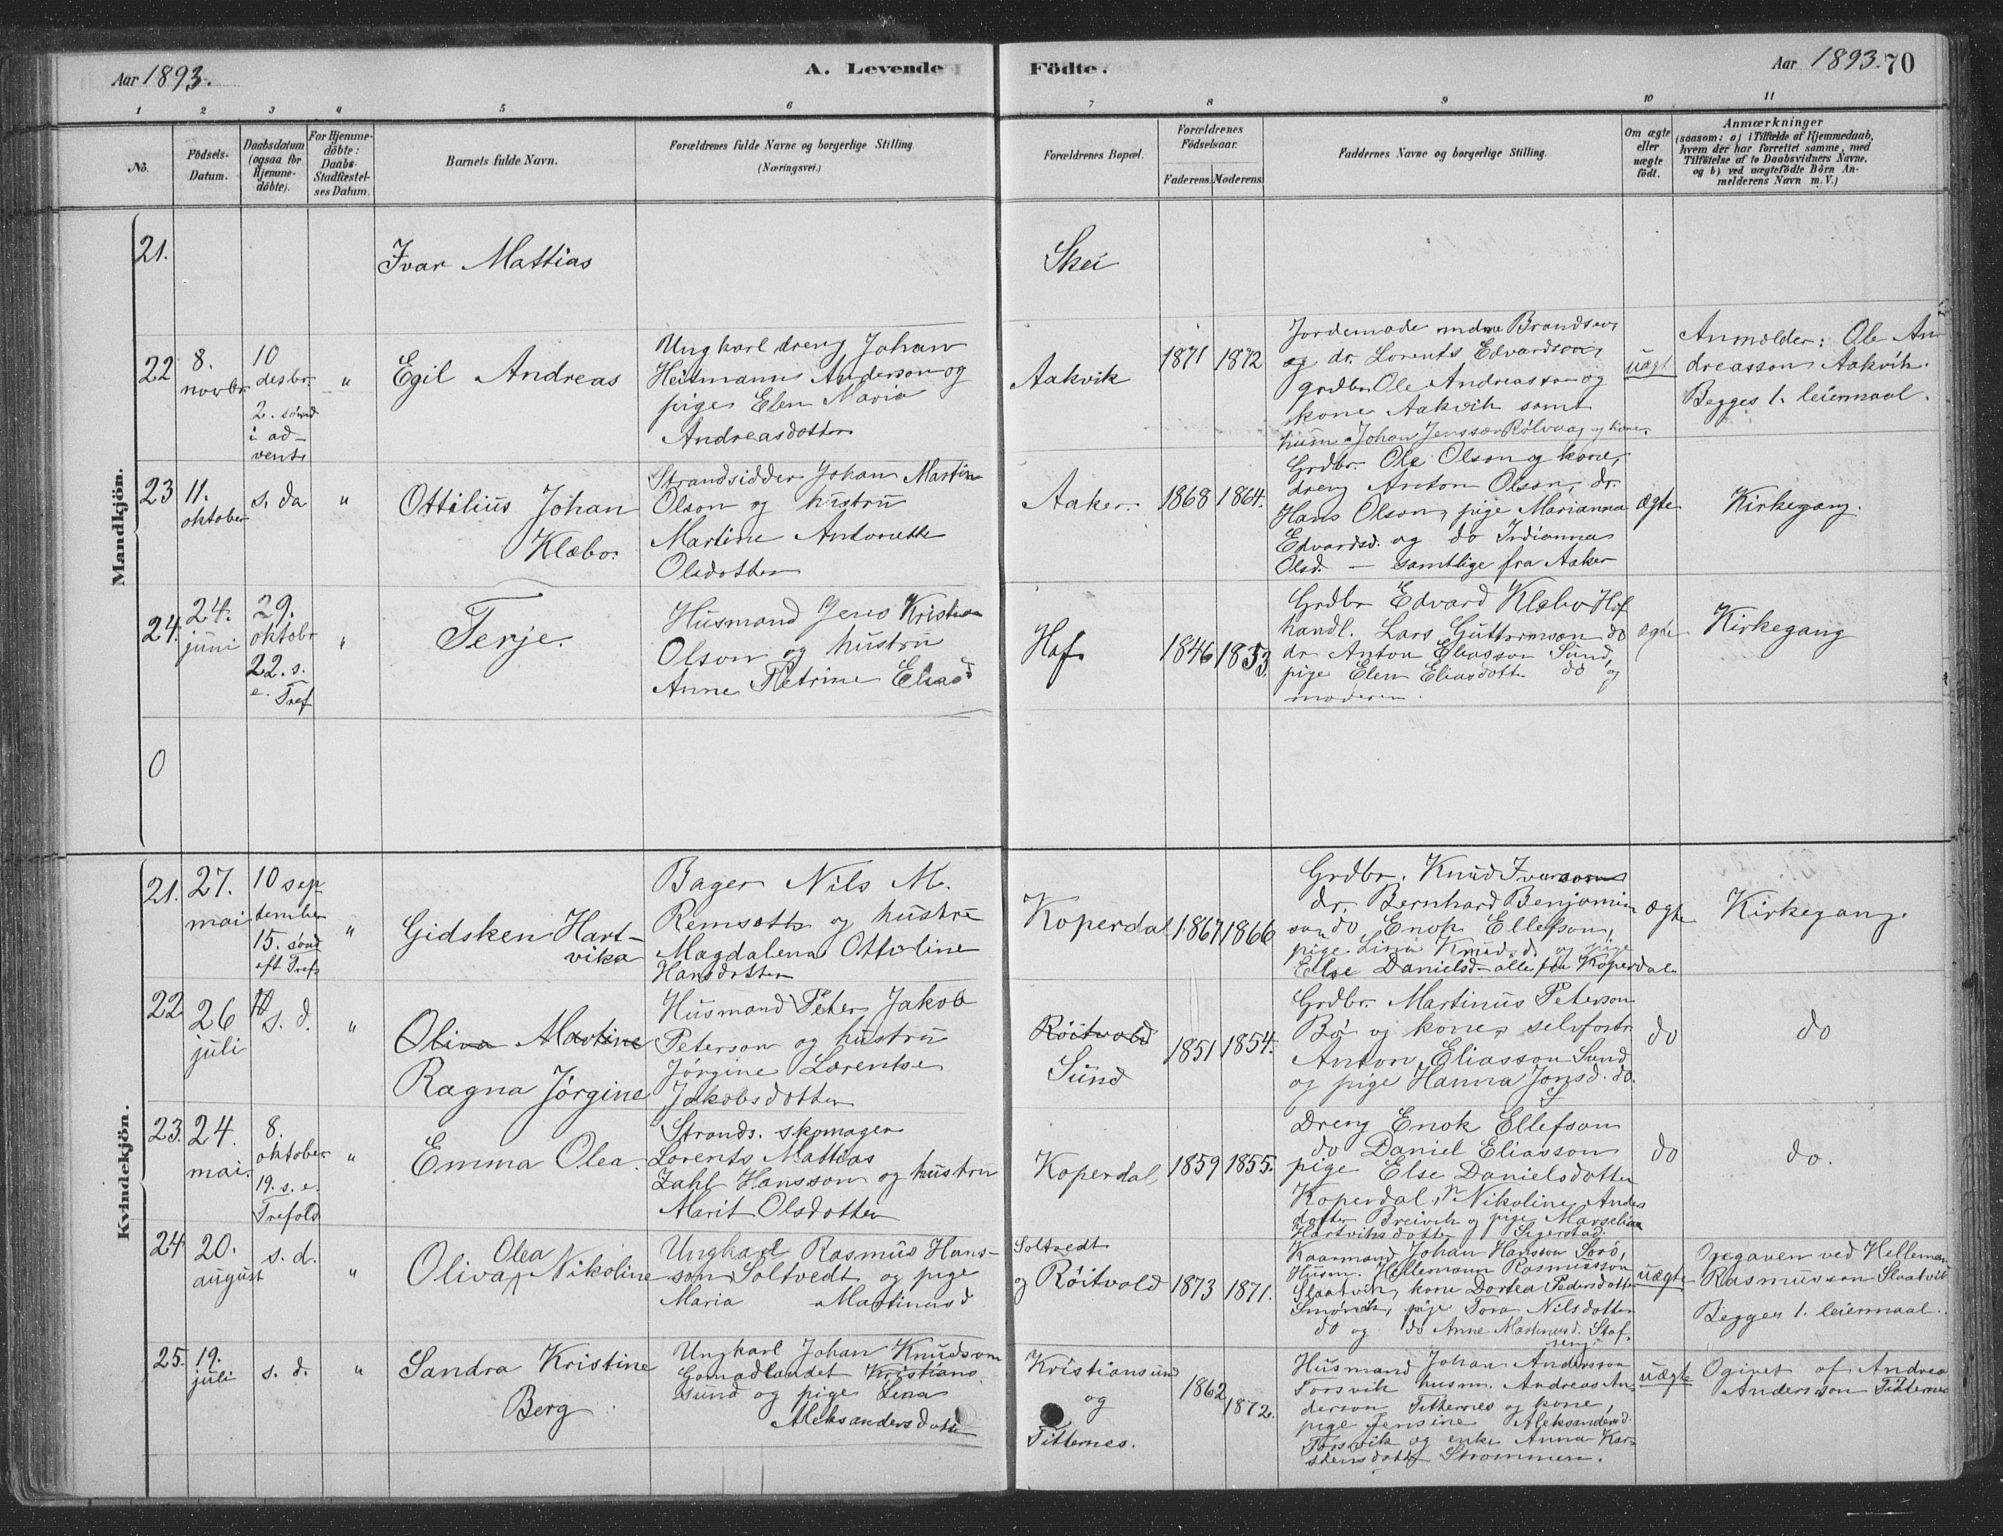 Aar 1893.
A. Levende
Födte.
Aar 1893. 70
1 2 3 4 5 6 7 8 9 10 11
No.
Födsels-
Datum.
Daabsdatum
(ogsaa for
Hjemme-
döbte).
For Hjemme-
döbte:
Daabs-
Stadfæstel-
ses Datum.
Barnets fulde Navn.
Forældrenes fulde Navne og borgerlige Stilling
(Næringsvei.)
Forældrenes Bopæl.
Forældrenes
Födselsaar.
Faderens. Moderens.
Faddernes Navne og borgerlige Stilling.
Om ægte
eller
uægte
födt.
Anmærkninger
(saasom: a) i Tilfælde af Hjemmedaab,
hvem der har forrettet samme, med
Tilföielse af to Daabsvidners Navne,
og b) ved uægtefödte Börn An-
melderens Navn m. V.)
Mandkjön.
21.
Ivar Mattias
Skei
22
8.
novbr.
10
desbr.
2. sønd
i ad-
vent
"
Egil Andreas
Ungkarl dreng Johan
Heitmann Anderson og
pige Elen Maria
Andreasdotter
Aakvik
1871
1872
Jordemode mdme Brandser,
og dr. Lorents Edvardson,
grdbr. Ole Andreasson og
kone Aakvik samt
husm. Johan Jenssen Rølvaag og kone.
uægt
Anmelder: Ole An-
dreasson Aakvik.
Begges 1. leiermaal.
23
11.
oktober
s. da
"
Ottilius Johan
Klæbo.
Strandsidder Johan Martin
Olson og hustru
Martine Antonette
Olsdotter
Aaker.
1868
1864.
Grdbr. Ole Olson og kone,
dreng Anton Olson, dr.
Hans Olson, pige Marianna
Edvardsd. og do Indianna
Olsd. — samtlige fra Aaker
ægte
Kirkegang.
24.
24.
juni
29.
oktobr
22. s.
e. Tref
"
Terje.
Husmand Jens Kristian
Olson og hustru
Anne Petrine Eliasd
Hof.
1846
1853.
Grdbr Edvard Klæbo Hof
handl. Lars Guttormson do
dr Anton Eliasson Sund,
pige Elen Eliasdotte do og
moderen.
ægte
Kirkegang
0
Kvindekjön.
21.
27.
mai
10 sep
tember
15. sønd
eft Tref
"
Gidsken Hart-
vika
Bager Nils M.
Remseth og hustru
Magdalena Ottoline
Hansdotter
Koperdal
1867
1866
Grdbr. Knud Ivarson
dr. Bernhard Benjamin
son do, Enok Ellefson,
pige Lina Knudsd. og pige
Else Danielsd – alle fra Koperdal
ægte
Kirkegang.
22
26
juli
s. d.
"
Oliva Martine
Ragna Jørgine
Husmand Peter Jakob
Peterson og hustru
Jørgine Lorentse
Jakobsdotter
Röitvold
Sund
1851
1854.
Grdbr. Martinus Peterson
Bø og kone, selvfostr
Anton Eliasson Sund
og pige Hanna Jonsd. do.
do
do
23.
24.
mai
8.
oktober
19. s. e.
Trefold
"
Emma Olea.
Strands. skomager
Lorents Mattias
Zahl Hansson og hustru
Marit Olsdotter
Koperdal
1859
1855.
Dreng Enok Ellefson
do Daniel Eliasson
pige Else Danielsdotter
Koperdal, Nikoline Anders
dotter Breivik og pige Marselia
Hartviksdotter Sigerstad.
do
do.
24.
20.
august
s. d.
"
Olea
Oliva Nikoline
Ungkarl Rasmus Hans-
son Soltvedt og pige
Maria Martinusd
Soltvedt
og Röitvold
1873
1871.
Kaarmand Johan Hansson Sorø,
Husm. Hellemann Rasmusson
Slaatvik, kone Dortea Pedersdotte
Smørvik, pige Tora Nilsdotter
do og do Anne Martinusd. Stof-
seng.
uægte
Opgaven ved Helleman
Rasmusson Slaatvik
Begges 1. leiermaal.
25.
19.
juli
s. d.
"
Sandra Kristine
Berg
Ungkarl Johan Knudson
Gomadlandet Kristians-
sund og pige Lina
Aleksandersdotte
Kristiansund
og
Titternes.
1862
1872.
Husmand Johan Andersson
Forsvik husm. Andreas An-
derson Titternes og kone,
pige Jensine Aleksandersd.
Forsvik og enke Anna Kar-
stensdotte Strømmen.
uægte
Ogivet af Andrea
Anderson Titternes